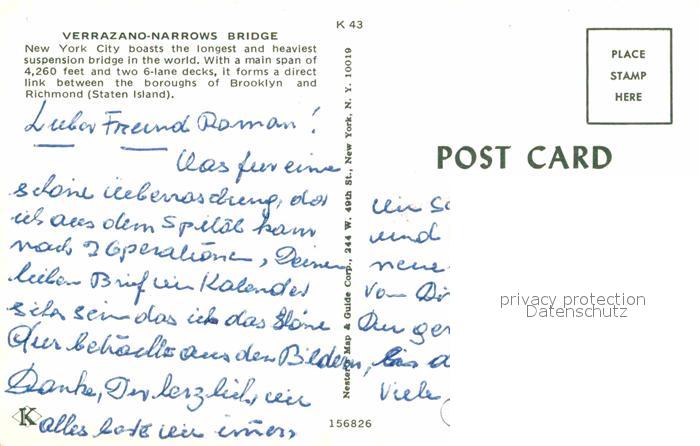 K 43
VERRAZANO-NARROWS BRIDGE
New York City boasts the longest and heaviest
suspension bridge in the world. With a main span of
4,260 feet and two 6-lane decks, it forms a direct
link between the boroughs of Brooklyn and
Richmond (Staten Island).
Lieber Freund Roman!
Was fur eine
schöne ueberraschung, das
ich aus dem Spital kam
nach 2 Operationen, Deinen
lieben Brief ein Kalender
das ich das Schöne
aus den Bildern, bis
Danke, Dir herzlich, ein
alles ein
K
Nester's Map & Guide Corp., 244 W. 49th St., New York, N. Y. 10019
156826
POST CARD
PLACE
STAMP
HERE
und
neue
Von
Viele
privacy protection
Datenschutz